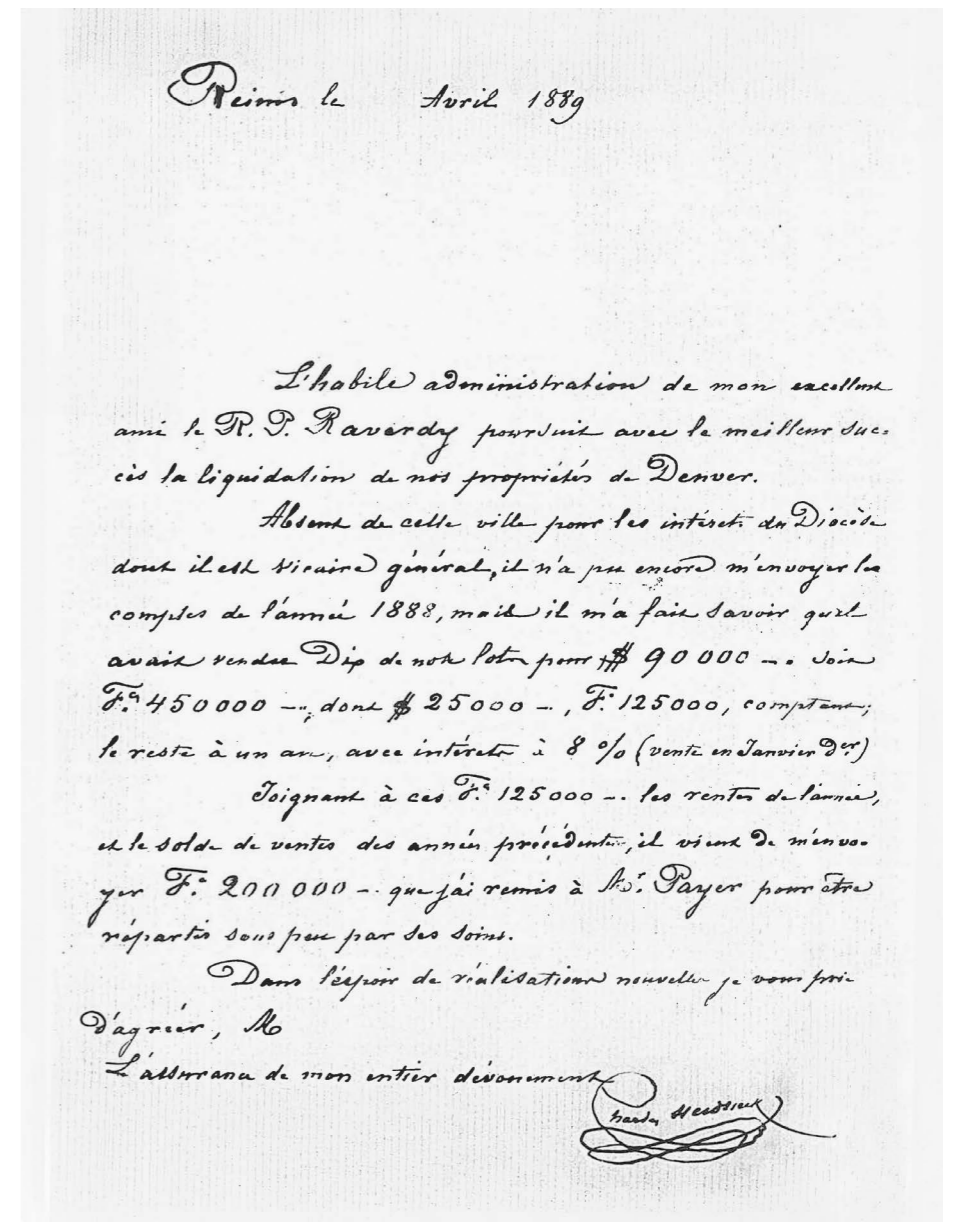 Reims le Avril 1889
L'habile administration de mon excellent
ami le R. P. Raverdy poursuit avec le meilleur suc=
cès la liquidation de nos propriétés de Denver.
Absent de cette ville pour les intérets du Diocèse
dont il est Vicaire général, il n'a pu encore m'envoyer les
comptes de l'année 1888, mais il m'a fait savoir qu'il
avait vendu Dix de nos lots pour $ 90 000 -. soit
F.cs 450 000 -., dont $ 25 000 -, F.s 125 000, comptant;
le reste à un an, avec intérets à 8 % (vente en Janvier Der)
Joignant à ces F.s 125 000 -. les rentes de l'année,
et le solde de ventes des années précédentes, il vient de m'envo=
yer F.s 200 000 -. que j'ai remis à Mr. Payer pour être
répartis sous peu par ses soins.
Dans l'éspoir de réalisations nouvelles je vous prie
d'agréér, M
L'assurance de mon entier dévouement
Charles Heidsieck